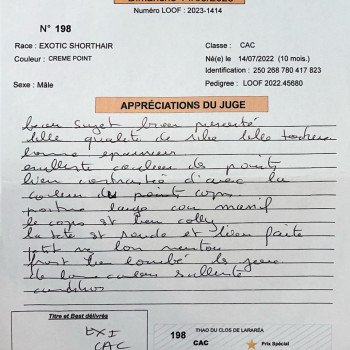 Numéro LOOF : 2023-1414
N° 198
Race : EXOTIC SHORTHAIR
Classe : CAC
Couleur : CREME POINT
Né(e) le 14/07/2022 (10 mois.)
Identification : 250 268 780 417 823
Sexe : Mâle
Pedigree : LOOF 2022.45680
APPRÉCIATIONS DU JUGE
beau sujet bien présenté
belle qualité de belle
bonne épaisseur
couleur de points
bien contrastée avec la
couleur du points corps
poitrine large cou massif
le corps est bien
la tête est ronde et bien faite
petit nez bon menton
front bien bombé
de bonne couleur
condition
Titre et Best délivrés
EX I
CAC
198
THAO DU CLOS DE LARARÉA
CAC
Prix Spécial